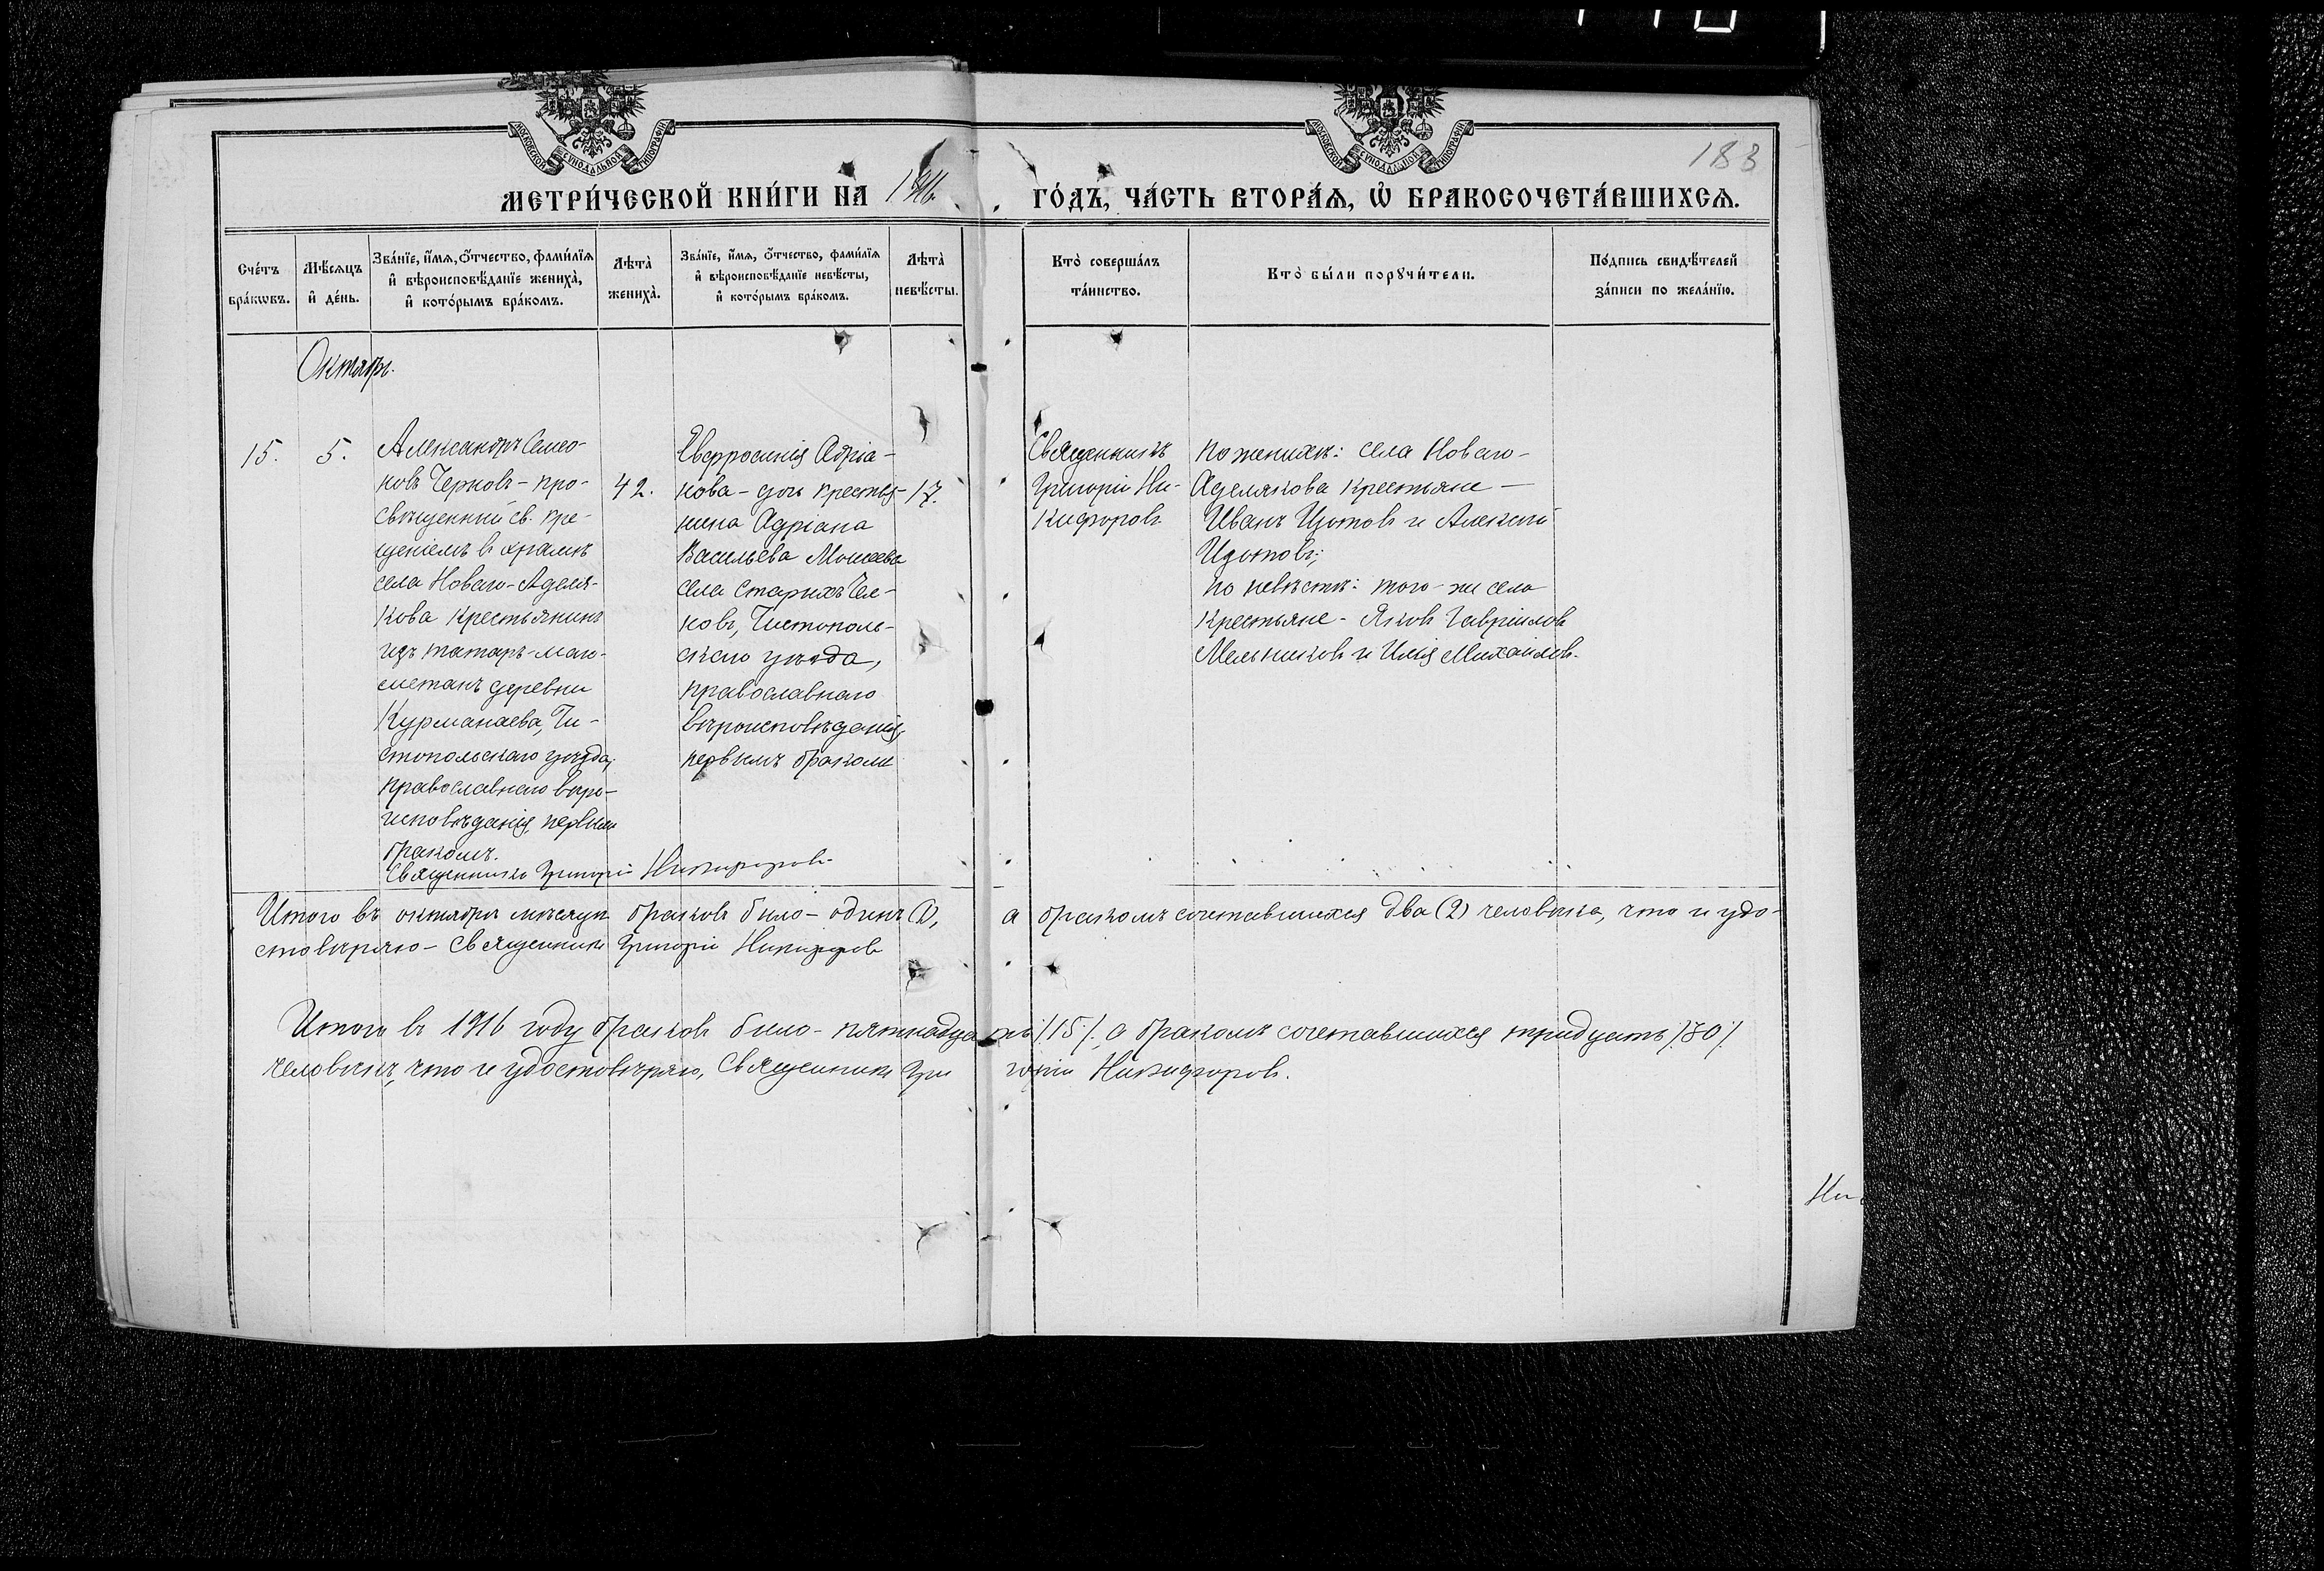 МОСКОВСКОЙ СѴНОДАЛЬНОЙ ТИПОГРАФІИ
МОСКОВСКОЙ СѴНОДАЛЬНОЙ ТИПОГРАФІИ
183
МЕТРИ́ЧЕСКОЙ КНИ́ГИ НА 1916
ГО́ДЪ, ЧА́СТЬ ВТОРА́Ѧ, Ѽ БРАКОСОЧЕТА́ВШИХСѦ.
Сче́тъ бра́кѡвъ.
Мѣ́сяцъ и҆ де́нь.
Зва́нїе, и҆́мя, ѻ҆́тчество, фами́лїя
и҆ вѣроисповѣ́данїе жениха̀,
и҆ кото́рымъ бра́комъ.
Лѣта̀ жениха̀.
Зва́нїе, и҆́мя, ѻ҆́тчество, фами́лїя
и҆ вѣроисповѣ́данїе невѣ́сты,
и҆ кото́рымъ бра́комъ.
Лѣта̀ невѣ́сты.
Кто̀ соверша́лъ
та́инство.
Кто̀ бы́ли порꙋчи́тели.
По́дпись свидѣ́телей
за́писи по жела́нїю.
Октябрь.
15.
5.
Александръ Семео-
новъ Черновъ - про-
свѣщенный св. кре-
щеніемъ въ храмѣ
села Новаго-Аделя-
кова крестьянинъ
изъ татаръ-маго-
метанъ деревни
Курманаева, Чи-
стопольскаго уѣзда,
православнаго вѣро-
исповѣданія, первымъ
бракомъ.
Священникъ Григорій Никифоровъ
42.
Евфросинія Адріа-
нова - дочь крестья-
нина Адріана
Васильева Моисеева
села Старыхъ Чел-
новъ, Чистополь-
скаго уѣзда,
православнаго
вѣроисповѣданія,
первымъ бракомъ
17.
Священникъ
Григорій Ни-
кифоровъ
По женихѣ: села Новаго-
Аделякова крестьяне -
Иванъ Изотовъ и Алексѣй
Изотовъ;
по невѣстѣ: того-же села
крестьяне - Яковъ Гавріиловъ
Мельниковъ и Илія Михаиловъ.
Итого въ октябрѣ мѣсяцѣ браковъ было - одинъ (1), а бракомъ сочетавшихся два (2) человѣка, что и удо-
стовѣряю - Священникъ Григорій Никифоровъ
Итого въ 1916 году браковъ было - пятнадцать /15/, а бракомъ сочетавшихся тридцать /30/
человѣкъ, что и удостовѣряю, Священникъ Григорій Никифоровъ.
Ни